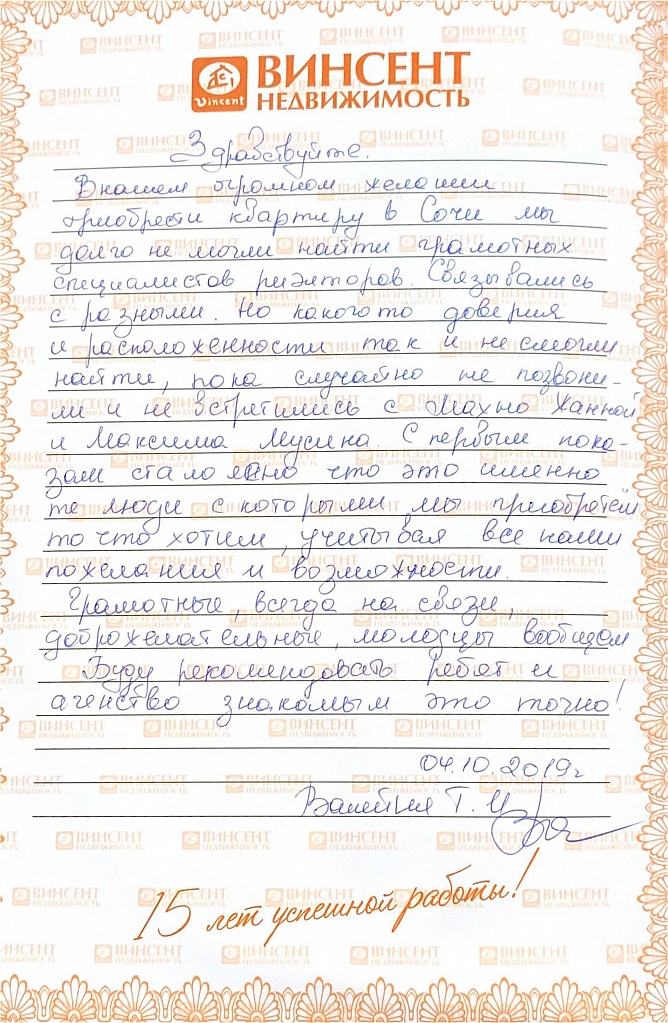 Vincent
ВИНСЕНТ
НЕДВИЖИМОСТЬ
Здравствуйте.
В нашем огромном желании
приобрести квартиру в Сочи мы
долго не могли найти грамотных
специалистов риэлторов. Связывались
с разными. Но какого то доверия
и расположенности так и не смогли
найти, пока случайно не позвони-
ли и не встретились с Махно Ханной
и Максима Мусина. С первым пока-
зом стало ясно что это именно
те люди с которыми мы приобретем
то что хотим, учитывая все наши
пожелания и возможности.
Грамотные, всегда на связи,
доброжелательные, молодцы вообщем
Буду рекомендовать ребят и
агенство знакомым это точно!
04.10.2019г
Т. И
15 лет успешной работы!